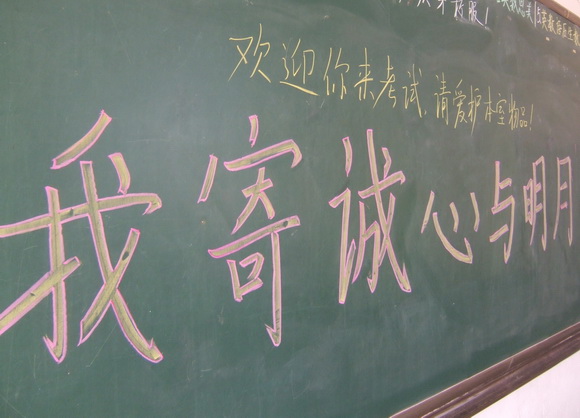 欢迎你来考试,请爱护本室物品!
我寄诚心与明月